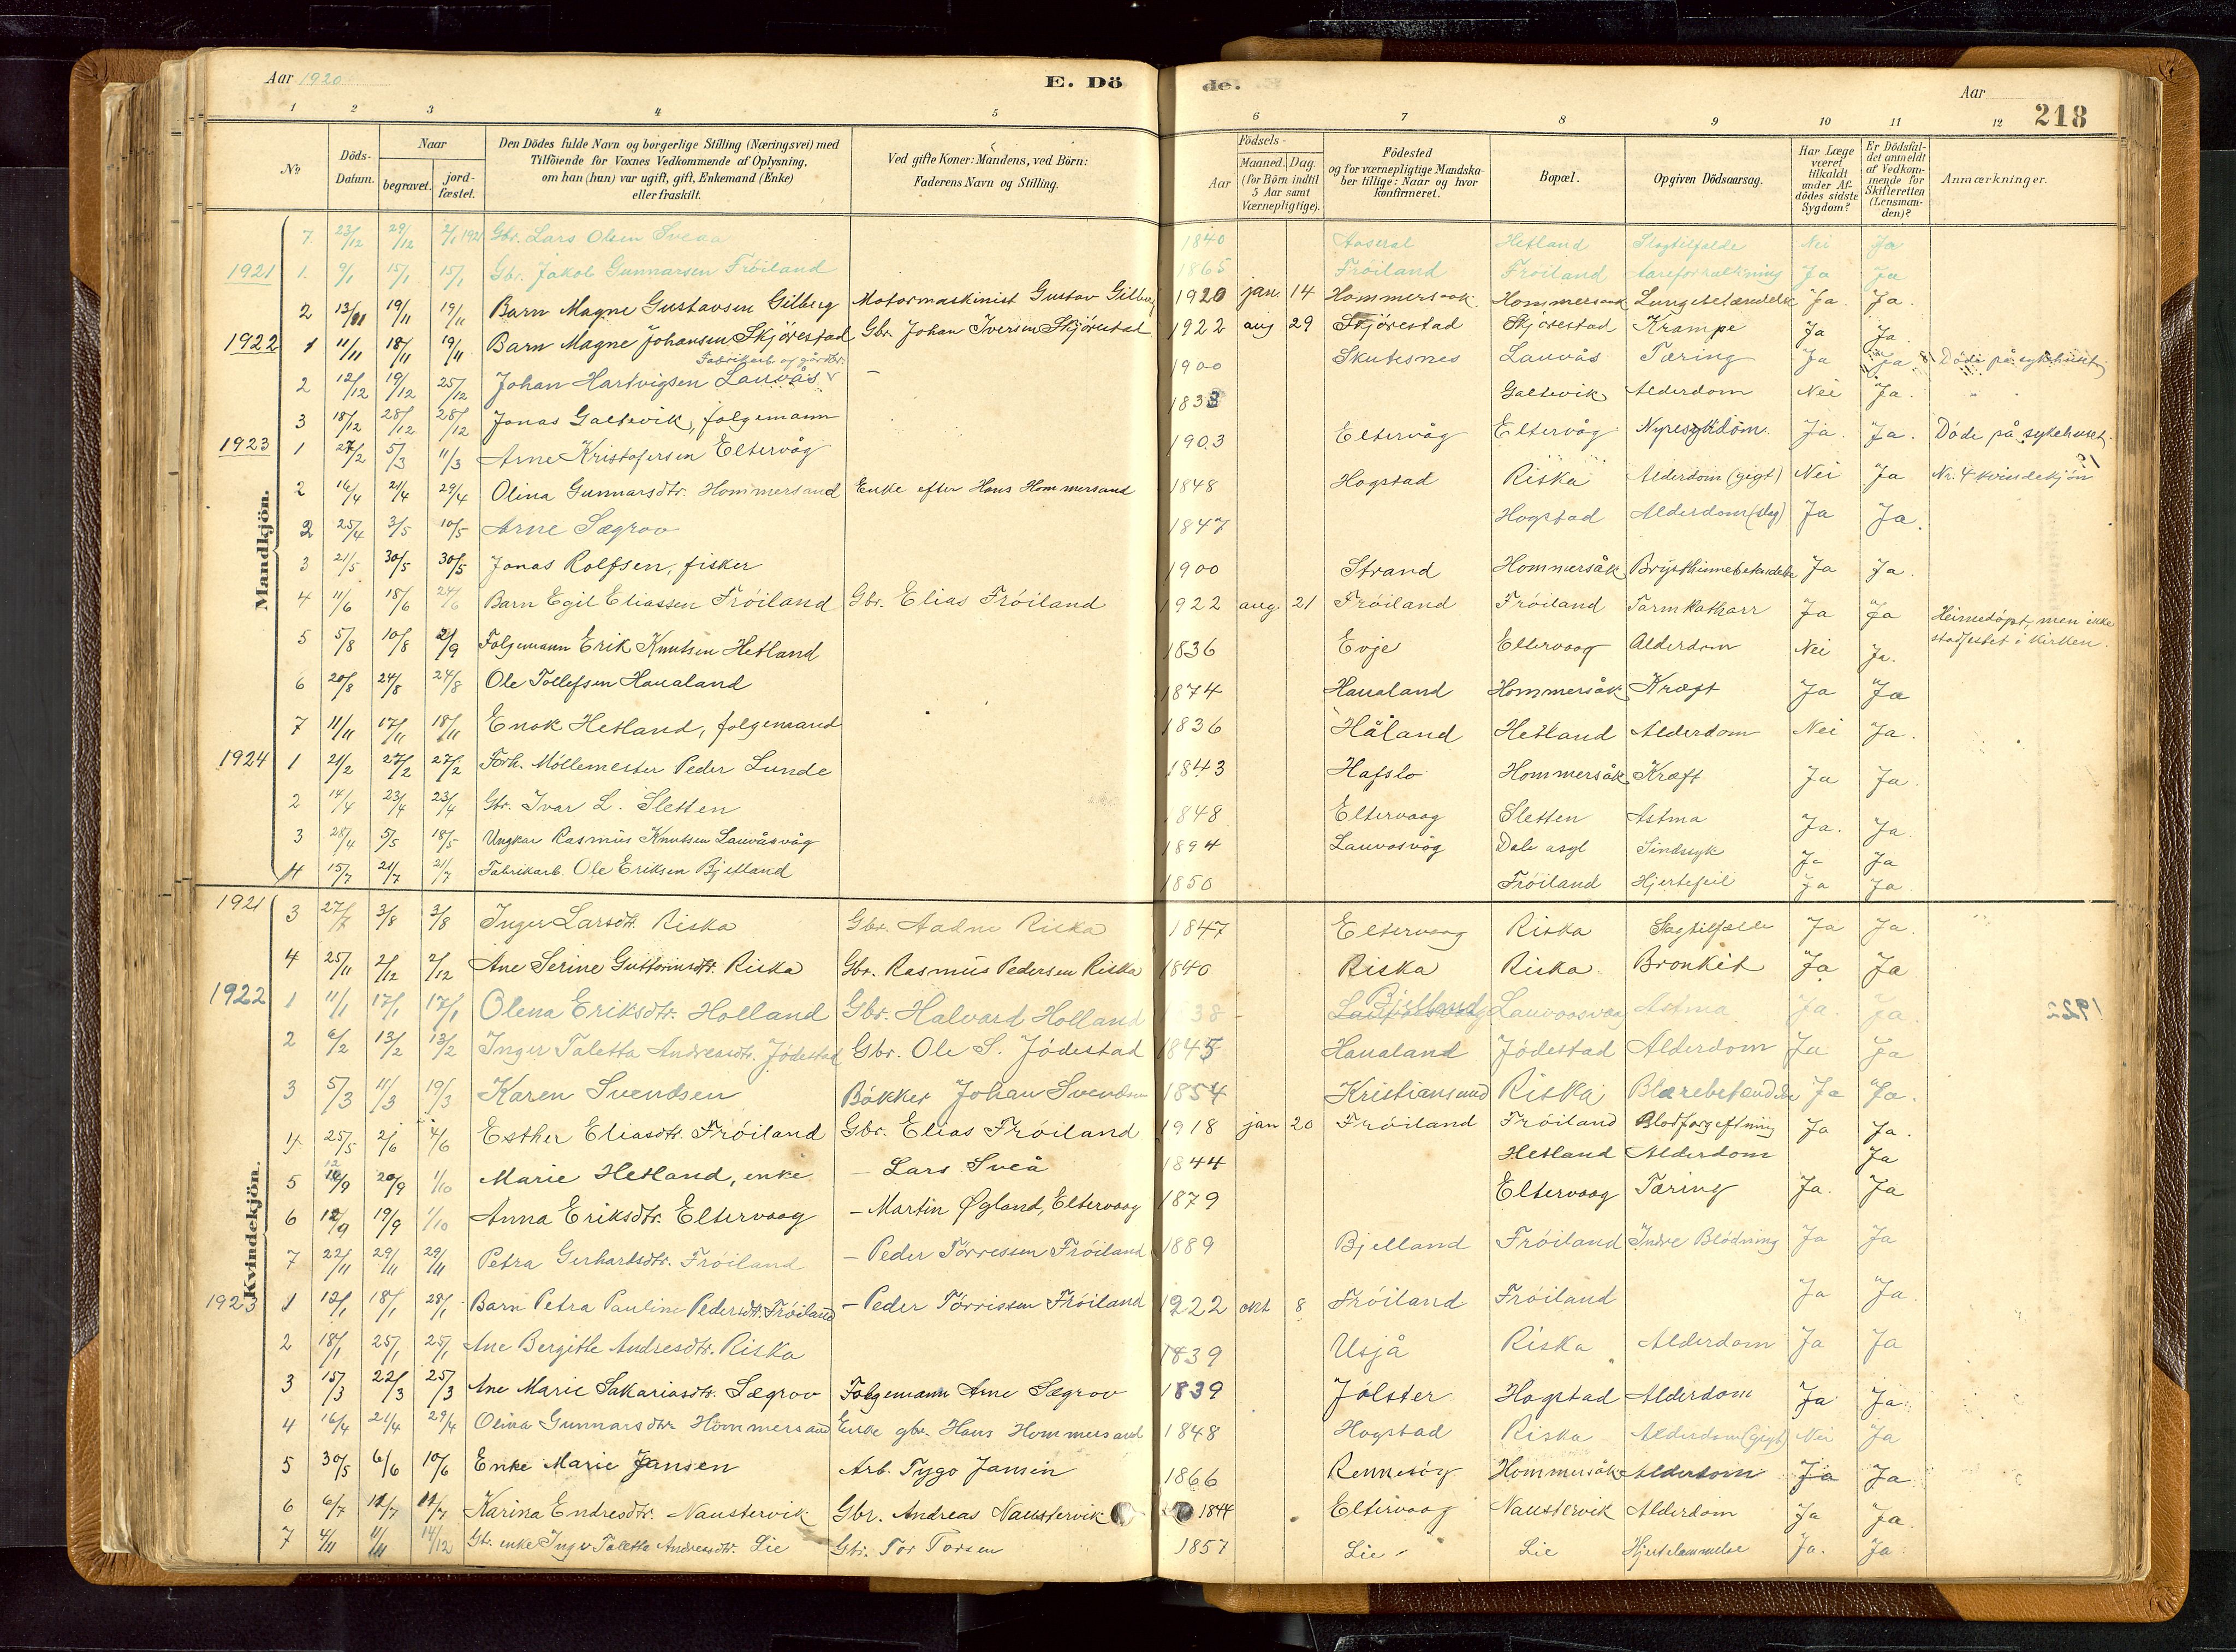 Aar 1920 E. Dö de. Aar 218
1 2 3 4 5 6 7 8 9 10 11 12
No Döds-Datum. Naar begravet. jord-fæstet. Den Dödes fulde Navn og borgerlige Stilling (Næringsvei) med Tilföiende for Voxnes Vedkommende af Oplysning, om han (hun) var ugift, gift, Enkemand (Enke) eller fraskilt. Ved gifte Koner: Mandens, ved Börn: Faderens Navn og Stilling. Födsels- Aar Maaned. Dag. (for Börn indtil 5 Aar samt Værnepligtige). Födested og for værnepligtige Mandskaber tillige: Naar og hvor konfirmeret. Bopæl. Opgiven Dödsaarsag. Har Læge været tilkaldt under Afdödes sidste Sygdom? Er Dödsfaldet anmeldt af Vedkommende for Skifteretten (Lensmanden)? Anmærkninger.
Mandkjön.
7. 23/12 29/12 2/1 1921 Gbr. Lars Olsen Sveaa 1840 Aaseral Hetland Slagtilfælde Nei Ja
1921 1. 9/1 15/1 15/1 Gbr. Jakob Gunnarsen Fröiland 1865 Fröiland Fröiland Aareforkalkning Ja Ja
2 13/11 19/11 19/11 Barn Magne Gustavsen Gilberg Motormaskinist Gustav Gilberg 1920 jan. 14 Hommersaak Hommersaak Lungebetændelse Ja. Ja.
1922 1 11/11 18/11 19/11 Barn Magne Johansen Skjörestad Gbr. Johan Iversen Skjörestad 1922 aug 29 Skjörestad Skjörestad Krampe Ja Ja.
2 12/12 19/12 25/12 Johan Hartvigsen Lauvås Fabrikarb. og gårdbr. — 1900 Skutesnes Lauvås Tæring Ja Ja Döde på sykehuset
3 18/12 28/12 28/12 Jonas Galtevik, folgemann 1833 Galtevik Alderdom Nei Ja.
1923 1 27/2 5/3 11/3 Arne Kristofersen Eltervåg 1903 Eltervåg Eltervåg Nyresykdom. Ja. Ja. Döde på sykehuset.
2 16/4 21/4 29/4 Olina Gunnarsdtr. Hommersand Enke efter Hans Hommersand 1848 Hogstad Riska Alderdom (gigt) Nei Ja Nr. 4 kvindekjön
2 25/4 3/5 10/5 Arne Sægrov 1847 Hogstad Alderdom (slag) Ja Ja.
3 21/5 30/5 30/5 Jonas Rolfsen, fisker 1900 Strand Hommersåk Brysthinnebetændelse Ja Ja.
4 11/6 18/6 24/6 Barn Egil Eliassen Fröiland Gbr. Elias Fröiland 1922 aug. 21 Fröiland Fröiland Tarmkatharr Ja Ja Heimedöpt, men ikke stadfestet i kirken.
5 5/8 10/8 2/9 Folgemann Erik Knutsen Hetland 1836 Evje Eltervaag Alderdom Nei Ja.
6 20/8 24/8 24/8 Ole Tollefsen Haualand 1874 Haualand Hommersåk Kræft Ja Ja
7 11/11 17/11 18/11 Enok Hetland, folgemand 1836 Håland Hetland Alderdom Nei Ja.
1924 1 21/2 27/2 27/2 Forh. Möllemester Peder Lunde 1843 Hafslo Hommersåk Kræft Ja Ja.
2 14/4 23/4 23/4 Gbr. Ivar L. Sletten 1848 Eltervaag Sletten Astma Ja. Ja.
3 28/4 5/5 18/5 Ungkar Rasmus Knutsen Lauvåsvåg 1894 Lauvasvåg Dale asyl Sindssyk Ja Ja
4 15/7 21/7 21/7 Fabrikarb. Ole Eriksen Bjelland 1850 Fröiland Hjertefeil Ja Ja
Kvindekjön.
1921 3 27/7 3/8 3/8 Inger Larsdtr. Riska Gbr. Aadne Riska 1847 Eltervaag Riska Slagtilfælde Ja Ja.
4 25/11 2/12 2/12 Ane Serine Guttormsdtr. Riska Gbr. Rasmus Pedersen Riska 1840 Riska Riska. Bronkit Ja Ja
1922 1 11/1 17/1 17/1 Olena Eriksdtr. Holland Gbr. Halvard Holland 38 Bjelland Lauvaasvaag Astma Ja. Ja. 1922
2 6/2 13/2 13/2 Inger Taletta Andreasdtr. Jödestad Gbr. Ole S. Jödestad 1845 Haualand Jödestad Alderdom Ja Ja
3 5/3 11/3 19/3 Karen Svendsen Bökker Johan Svendsen 1854 Kristiansund Riska Blærebetændelse Ja Ja.
4 25/5 2/6 4/6 Esther Eliasdtr. Fröiland Gbr. Elias Fröiland 1918 jan 20 Fröiland Fröiland Blodforgiftning Ja Ja.
5 12/9 20/9 1/10 Marie Hetland, enke — Lars Sveå 1844 Hetland Alderdom Ja
6 12/9 19/9 1/10 Anna Eriksdtr. Eltervaag — Martin Øgland, Eltervaag 1879 Eltervaag Tæring Ja. Ja
7 22/11 29/11 29/11 Petra Gerhardsdtr. Fröiland — Peder Törressen Fröiland 1889 Bjelland Fröiland Indre Blödning Ja Ja
1923 1 12/1 18/1 28/1 Barn Petra Pauline Pedersdtr. Fröiland — Peder Törrissen Fröiland 1922 okt 8 Fröiland Fröiland Ja Ja.
2 18/1 25/1 25/1 Ane Bergitte Andresdtr. Riska 1839 Usjå Riska Alderdom Ja Ja
3 15/3 22/3 25/3 Ane Marie Sakariasdtr. Sægrov Folgemann Arne Sægrov 1839 Jölster Hogstad Alderdom Ja Ja.
4 16/4 21/4 29/4 Olina Gunnarsdtr Hommersand Enke gbr. Hans Hommersand 1848 Hogstad Riska Alderdom (gigt) Nei Ja
5 30/5 6/6 10/6 Enke Marie Jansen Arb. Tygo Jansen 1866 Rennesöy Hommersåk Alderdom Ja Ja
6 6/7 12/7 12/7 Karina Endresdtr. Naustervik Gbr. Andreas Naustervik 1844 Eltervaag Naustervik Alderdom Ja Ja.
7 4/11 11/11 14/12 Gbr. enke Inger Talette Andreasdtr. Lie Gbr. Tor Torsen 1857 Lie Lie Hjertelammelse Ja. Ja.